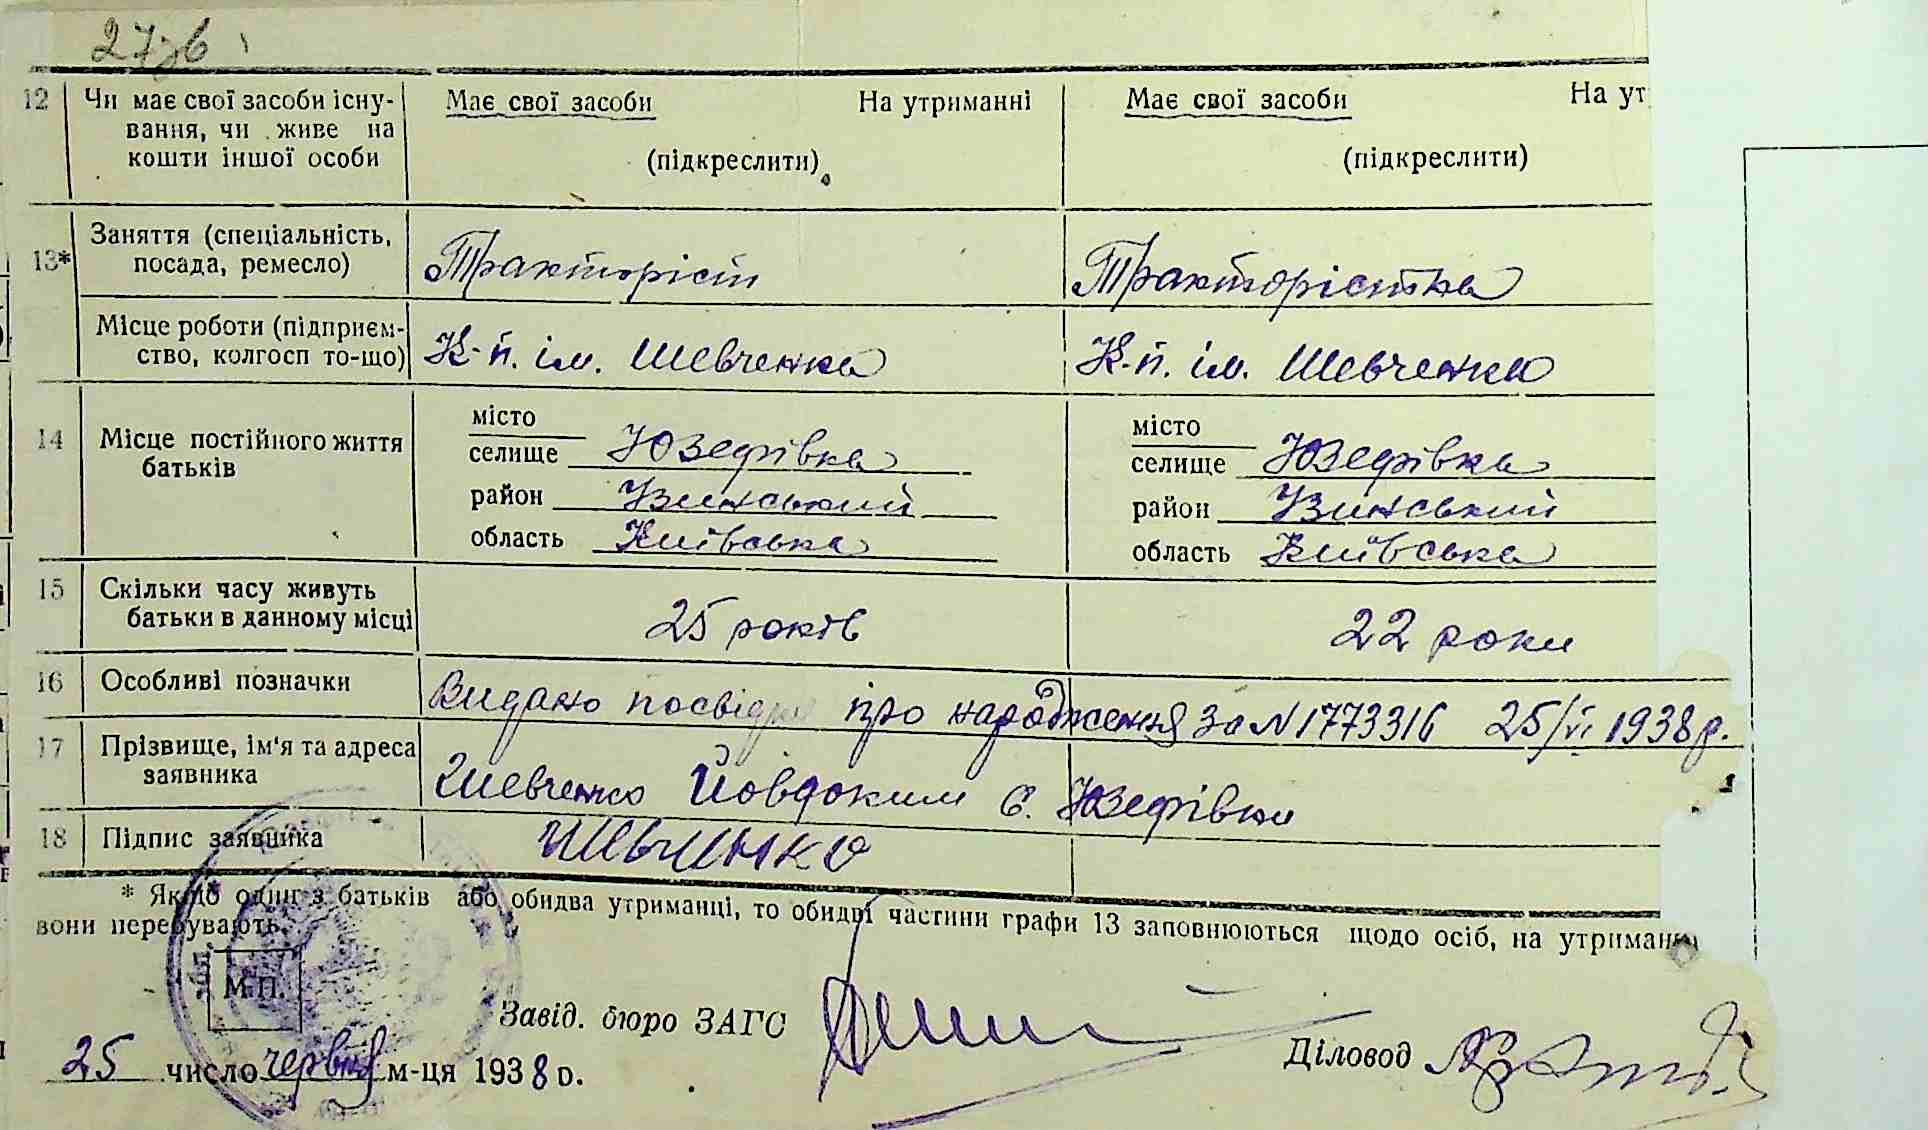 27зв
12 Чи має свої засоби існу- Має свої засоби На утриманні Має свої засоби На ут
вання, чи живе на
кошти іншої особи (підкреслити) (підкреслити)
13* Заняття (спеціальність,
посада, ремесло) Тракторіст Тракторістка
Місце роботи (підприєм-
ство, колгосп то-що) К-п. ім. Шевченка К-п. ім. Шевченка
14 Місце постійного життя місто місто
батьків селище Юзефівка селище Юзефівка
район Узинський район Узинський
область Київська область Київська
15 Скільки часу живуть
батьки в данному місці 25 років 22 роки
16 Особливі позначки Видано посвідч про народження за № 1773316 25/VI 1938 р.
17 Прізвище, ім'я та адреса
заявника Шевченко Йовдоким с. Юзефівки
18 Підпис заявника Шевченко
* Якщо один з батьків або обидва утриманці, то обидві частини графи 13 заповнюються щодо осіб, на утриманні
вони перебувають.
М.П.
Завід. бюро ЗАГС
Діловод
25 число червня м-ця 1938 р.